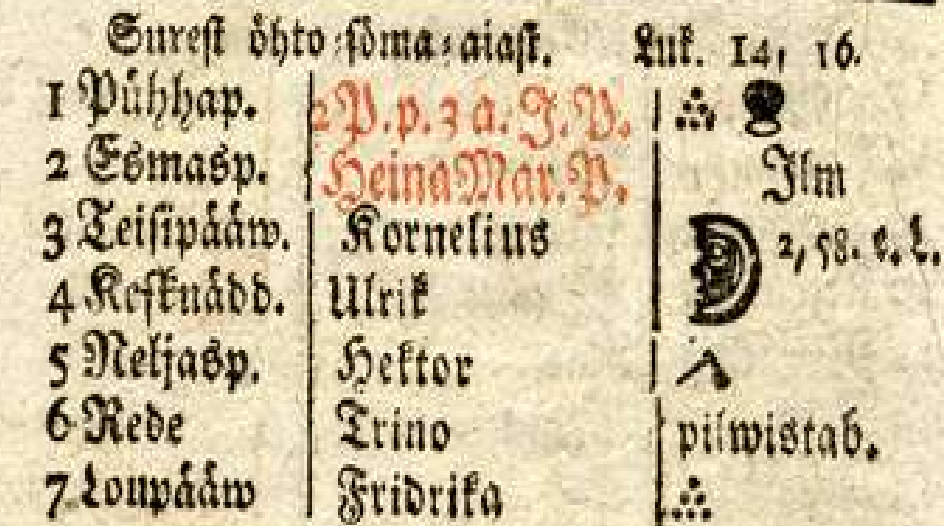 Surest öhto-söma-aiast. Luk. 14, 16.
1 Pühhap. 2 P. p. 3 a. J. P.
2 Esmasp. HeinaMar. P. Ilm
3 Teisipääw. Kornelius 2, 58. e. L.
4 Kesknädd. Ulrik
5 Neljasp. Hektor
6 Rede Trino pilwistab.
7 Loupääw Fridrika